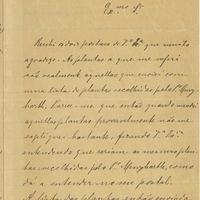 Ex.mo Sr.
Recebi os dois postaes de V. Ex.a que muito
agradeço. As plantas a que me referi
são realmente aquellas que enviei com
uma lista de plantas escolhidas pelo Sr. Menyharth.
Parece-me que então quando enviei
aquellas plantas provavelmente não me
expliquei bastante, ficando V. Ex.a
entendendo que seriam as mesmas plantas
escolhidas pelo P.e Menyharth, como
dá a entender no seu postal.
A lista das plantas então enviada